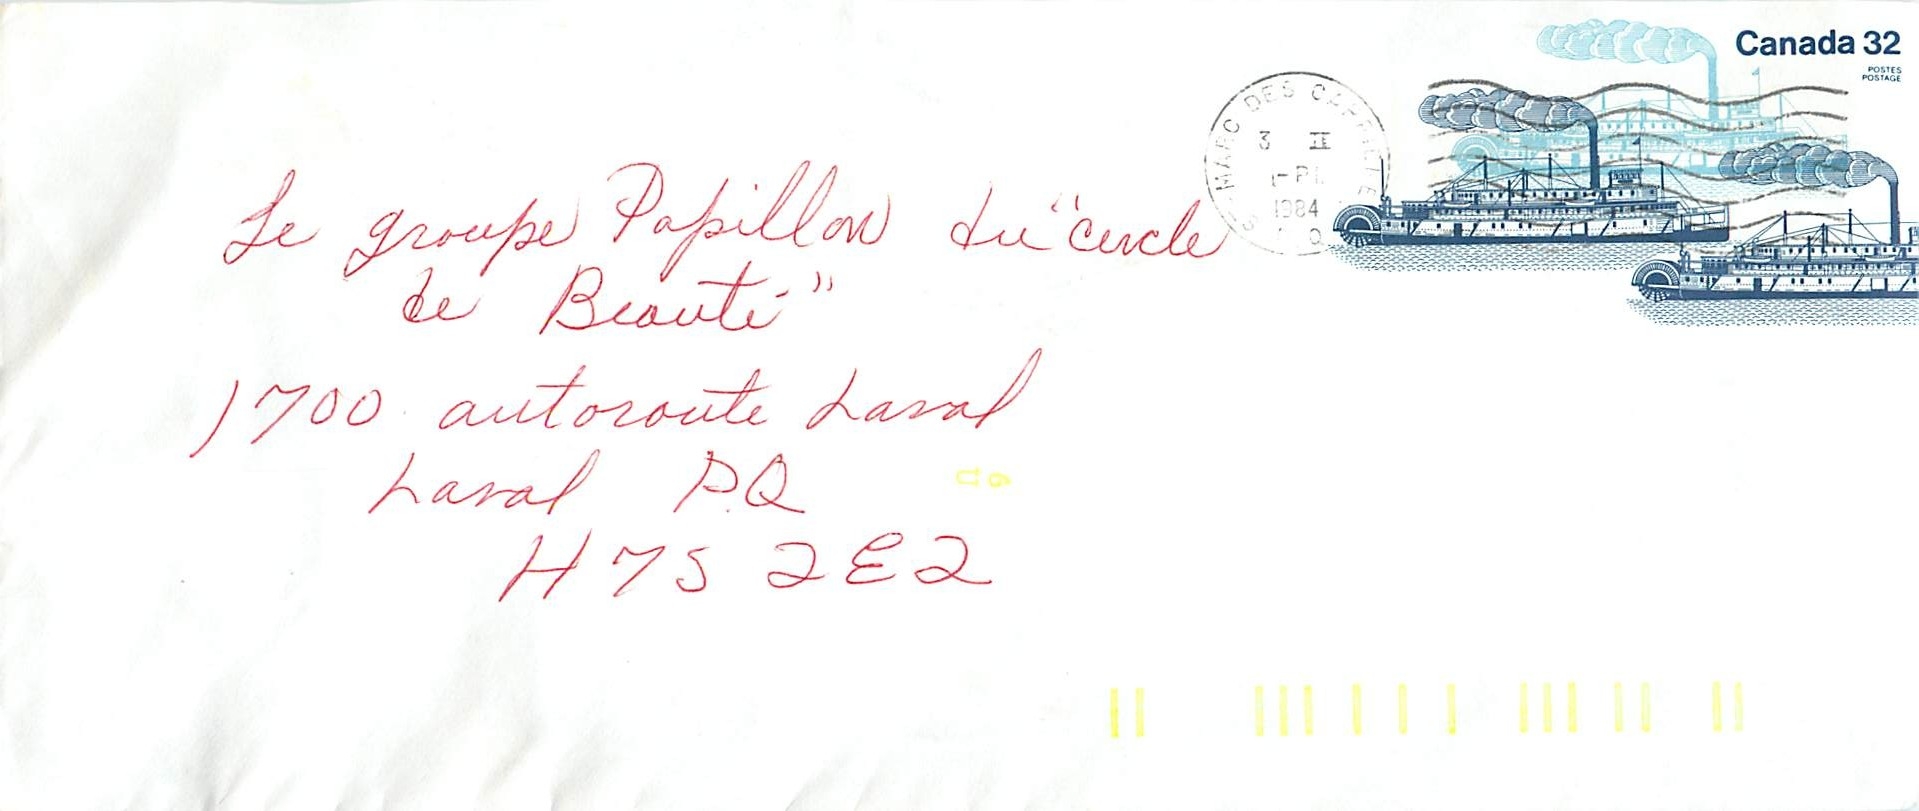 Canada 32
POSTES
POSTAGE
ST-MARC DES CARRIERES
3 II
1984
Le groupe Papillon du "cercle
de Beauté"
1700 autoroute Laval
Laval P.Q
H7S 2E2